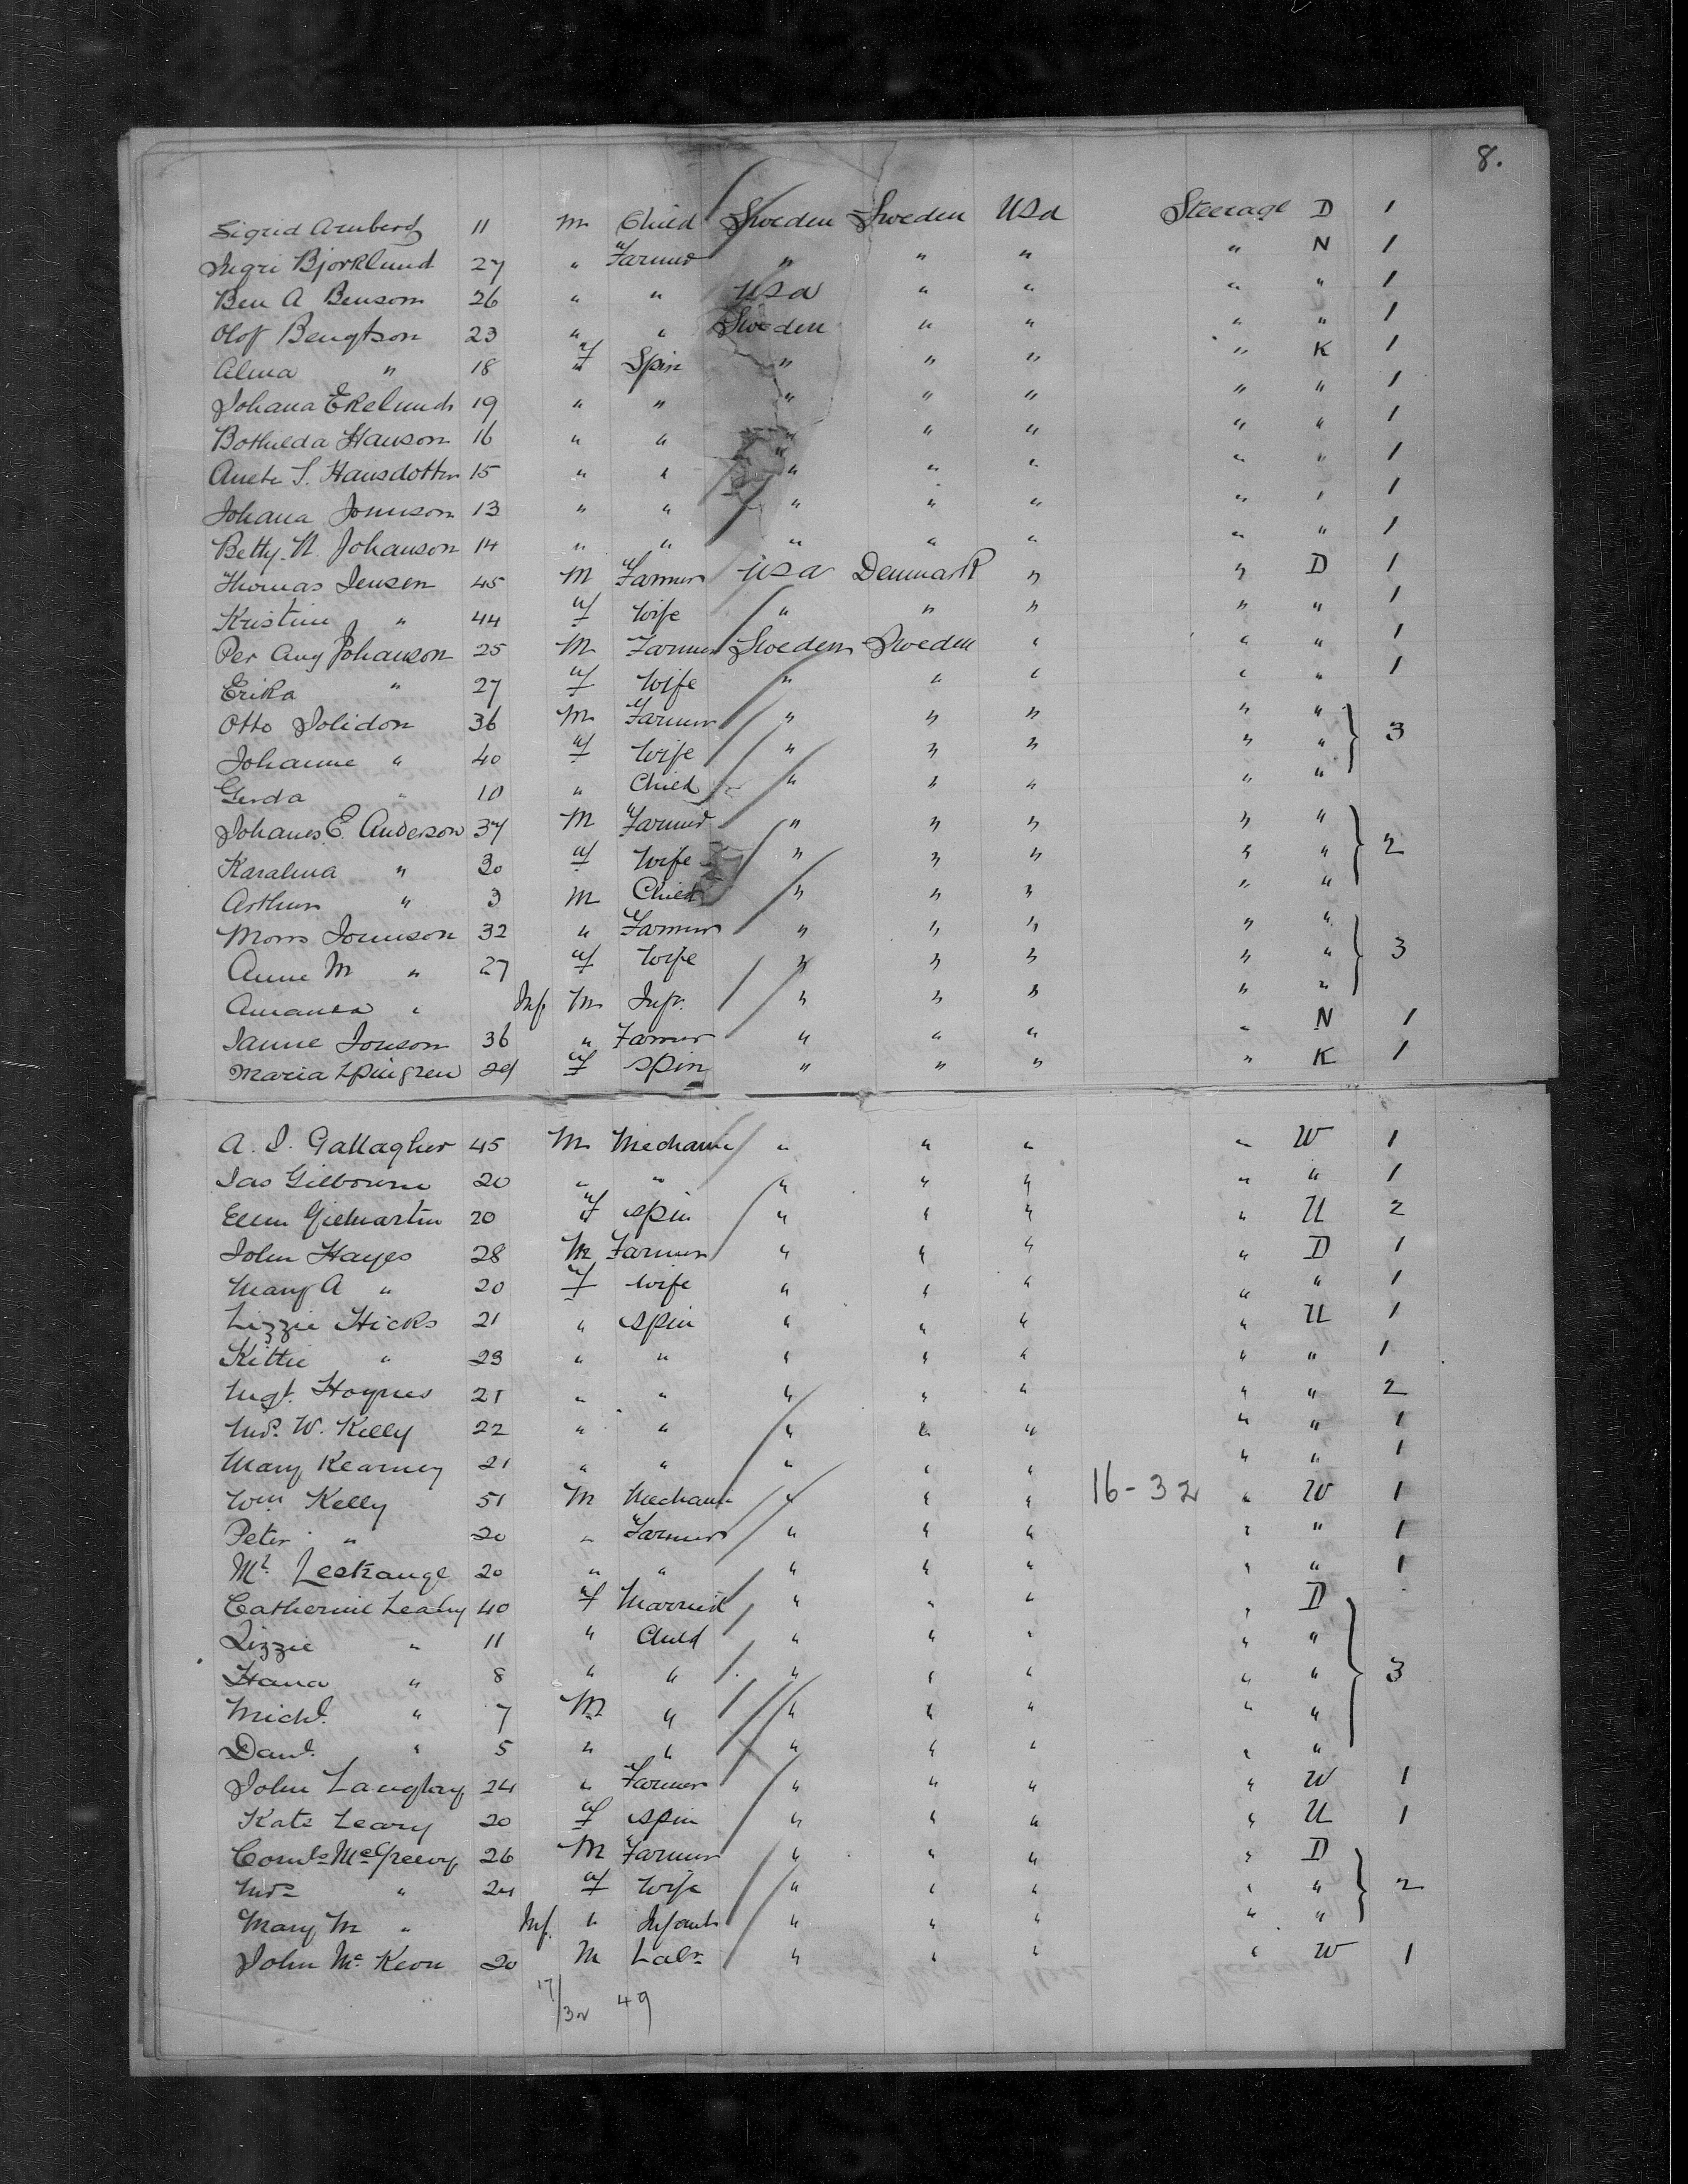 8.
Sigrid Arnberg 11 m Child Sweden Sweden USa Steerage D 1
Ingri Bjorklund 27 " Farmer " " " " N 1
Ben A Benson 26 " " USa " " " " 1
Olof Bengtson 23 " " Sweden " " " " 1
Alma " 18 f Spin " " " " K 1
Johana Ekelund 19 " " " " " " " 1
Bothilda Hanson 16 " " " " " " " 1
Anete S. Hansdotter 15 " " " " " " " 1
Johana Jonnson 13 " " " " " " " 1
Betty N. Johanson 14 " " " " " " " 1
Thomas Jensen 45 M Farmer USa Denmark " " D 1
Kristine " 44 f Wife " " " " " 1
Per Aug Johanson 25 M Farmer Sweden Sweden " " " 1
Erika " 27 f Wife " " " " " 1
Otto Jolidon 36 M Farmer " " " " "
Johanne " 40 f Wife " " " " " 3
Gerda " 10 " Child " " " " "
Johanes E. Anderson 37 M Farmer " " " " "
Karalina " 30 f Wife " " " " " 2
Arthur " 3 M Child " " " " "
Mons Jonnson 32 " Farmer " " " " "
Anne M " 27 f Wife " " " " " 3
Amanda " Inf M Inf. " " " " "
Janne Jonson 36 " Farmer " " " " N 1
Maria 29 f Spin " " " " K 1
A. J. Gallagher 45 M Mechanic " " " " W 1
Jas Gilbourne 20 " " " " " " " 1
Ellen Gilmartin 20 f Spin " " " " U 2
John Hayes 28 M Farmer " " " " D 1
Mary A " 20 f Wife " " " " " 1
Lizzie Hicks 21 " Spin " " " " U 1
Kittie " 23 " " " " " " " 1
Mgt. Hoynes 21 " " " " " " " 2
Mrs. W. Kelly 22 " " " " " " " 1
Mary Kearney 21 " " " " " " " 1
Wm Kelly 51 M Mechanic " " " 16-32 " W 1
Peter " 20 " Farmer " " " " " 1
Ml Lestrange 20 " " " " " " " 1
Catherine Leahy 40 f Married " " " " D
Lizzie " 11 " Child " " " " "
Hana " 8 " " " " " " " 3
Michl. " 7 M " " " " " "
Danl. " 5 " " " " " " "
John Langtry 24 " Farmer " " " " W 1
Kate Leary 20 f Spin " " " " U 1
Cornls McGreevy 26 M Farmer " " " " D
Mrs " 24 f Wife " " " " " 2
Mary M " Inf. " Infant " " " " "
John McKeon 20 M Labr " " " " W 1
17/32 49